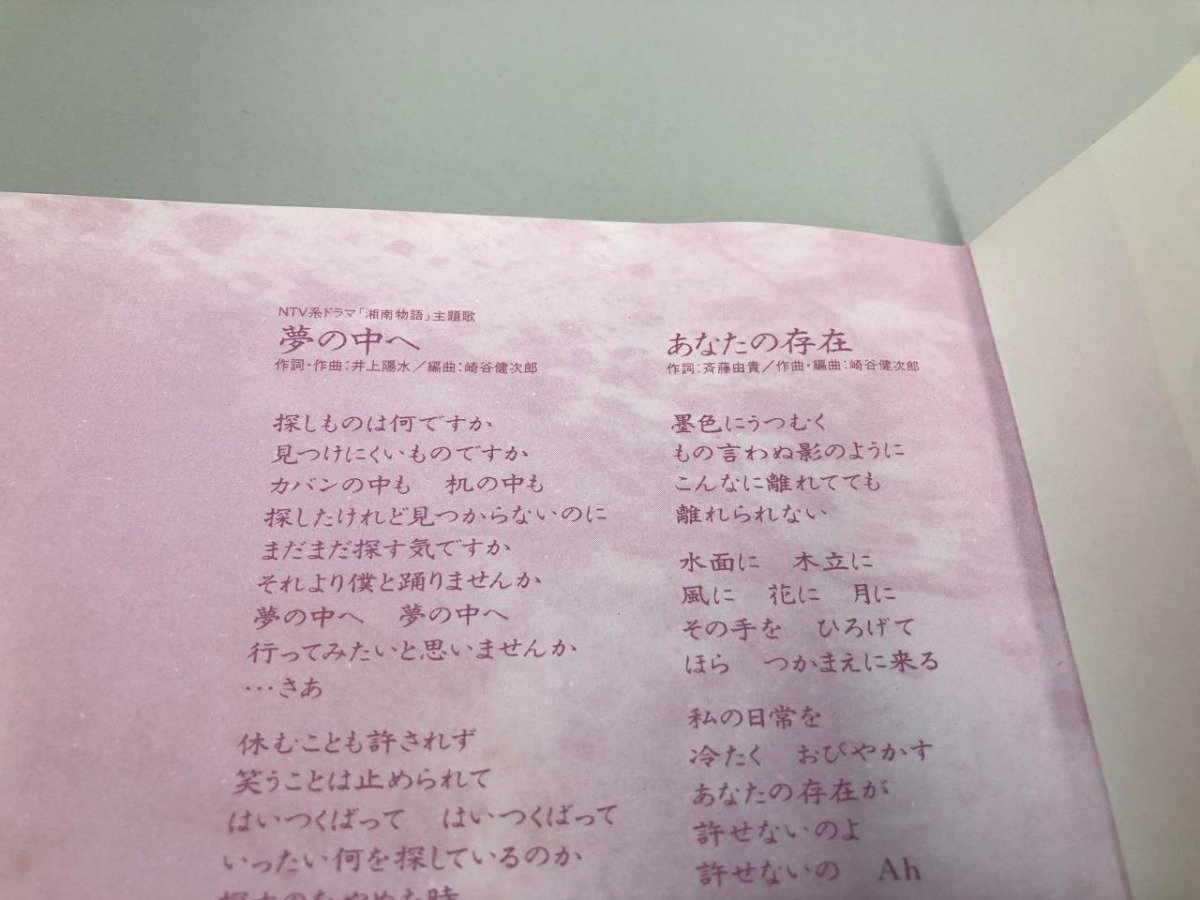 NTV系ドラマ「湘南物語」主題歌
夢の中へ
作詞・作曲:井上陽水/編曲:崎谷健次郎
探しものは何ですか
見つけにくいものですか
カバンの中も　机の中も
探したけれど見つからないのに
まだまだ探す気ですか
それより僕と踊りませんか
夢の中へ　夢の中へ
行ってみたいと思いませんか
…さあ
休むことも許されず
笑うことは止められて
はいつくばって　はいつくばって
いったい何を探しているのか
探すのをやめた時
あなたの存在
作詞:斉藤由貴/作曲・編曲:崎谷健次郎
墨色にうつむく
もの言わぬ影のように
こんなに離れてても
離れられない
水面に　木立に
風に　花に　月に
その手を　ひろげて
ほら　つかまえに来る
私の日常を
冷たく　おびやかす
あなたの存在が
許せないのよ
許せないの　Ah